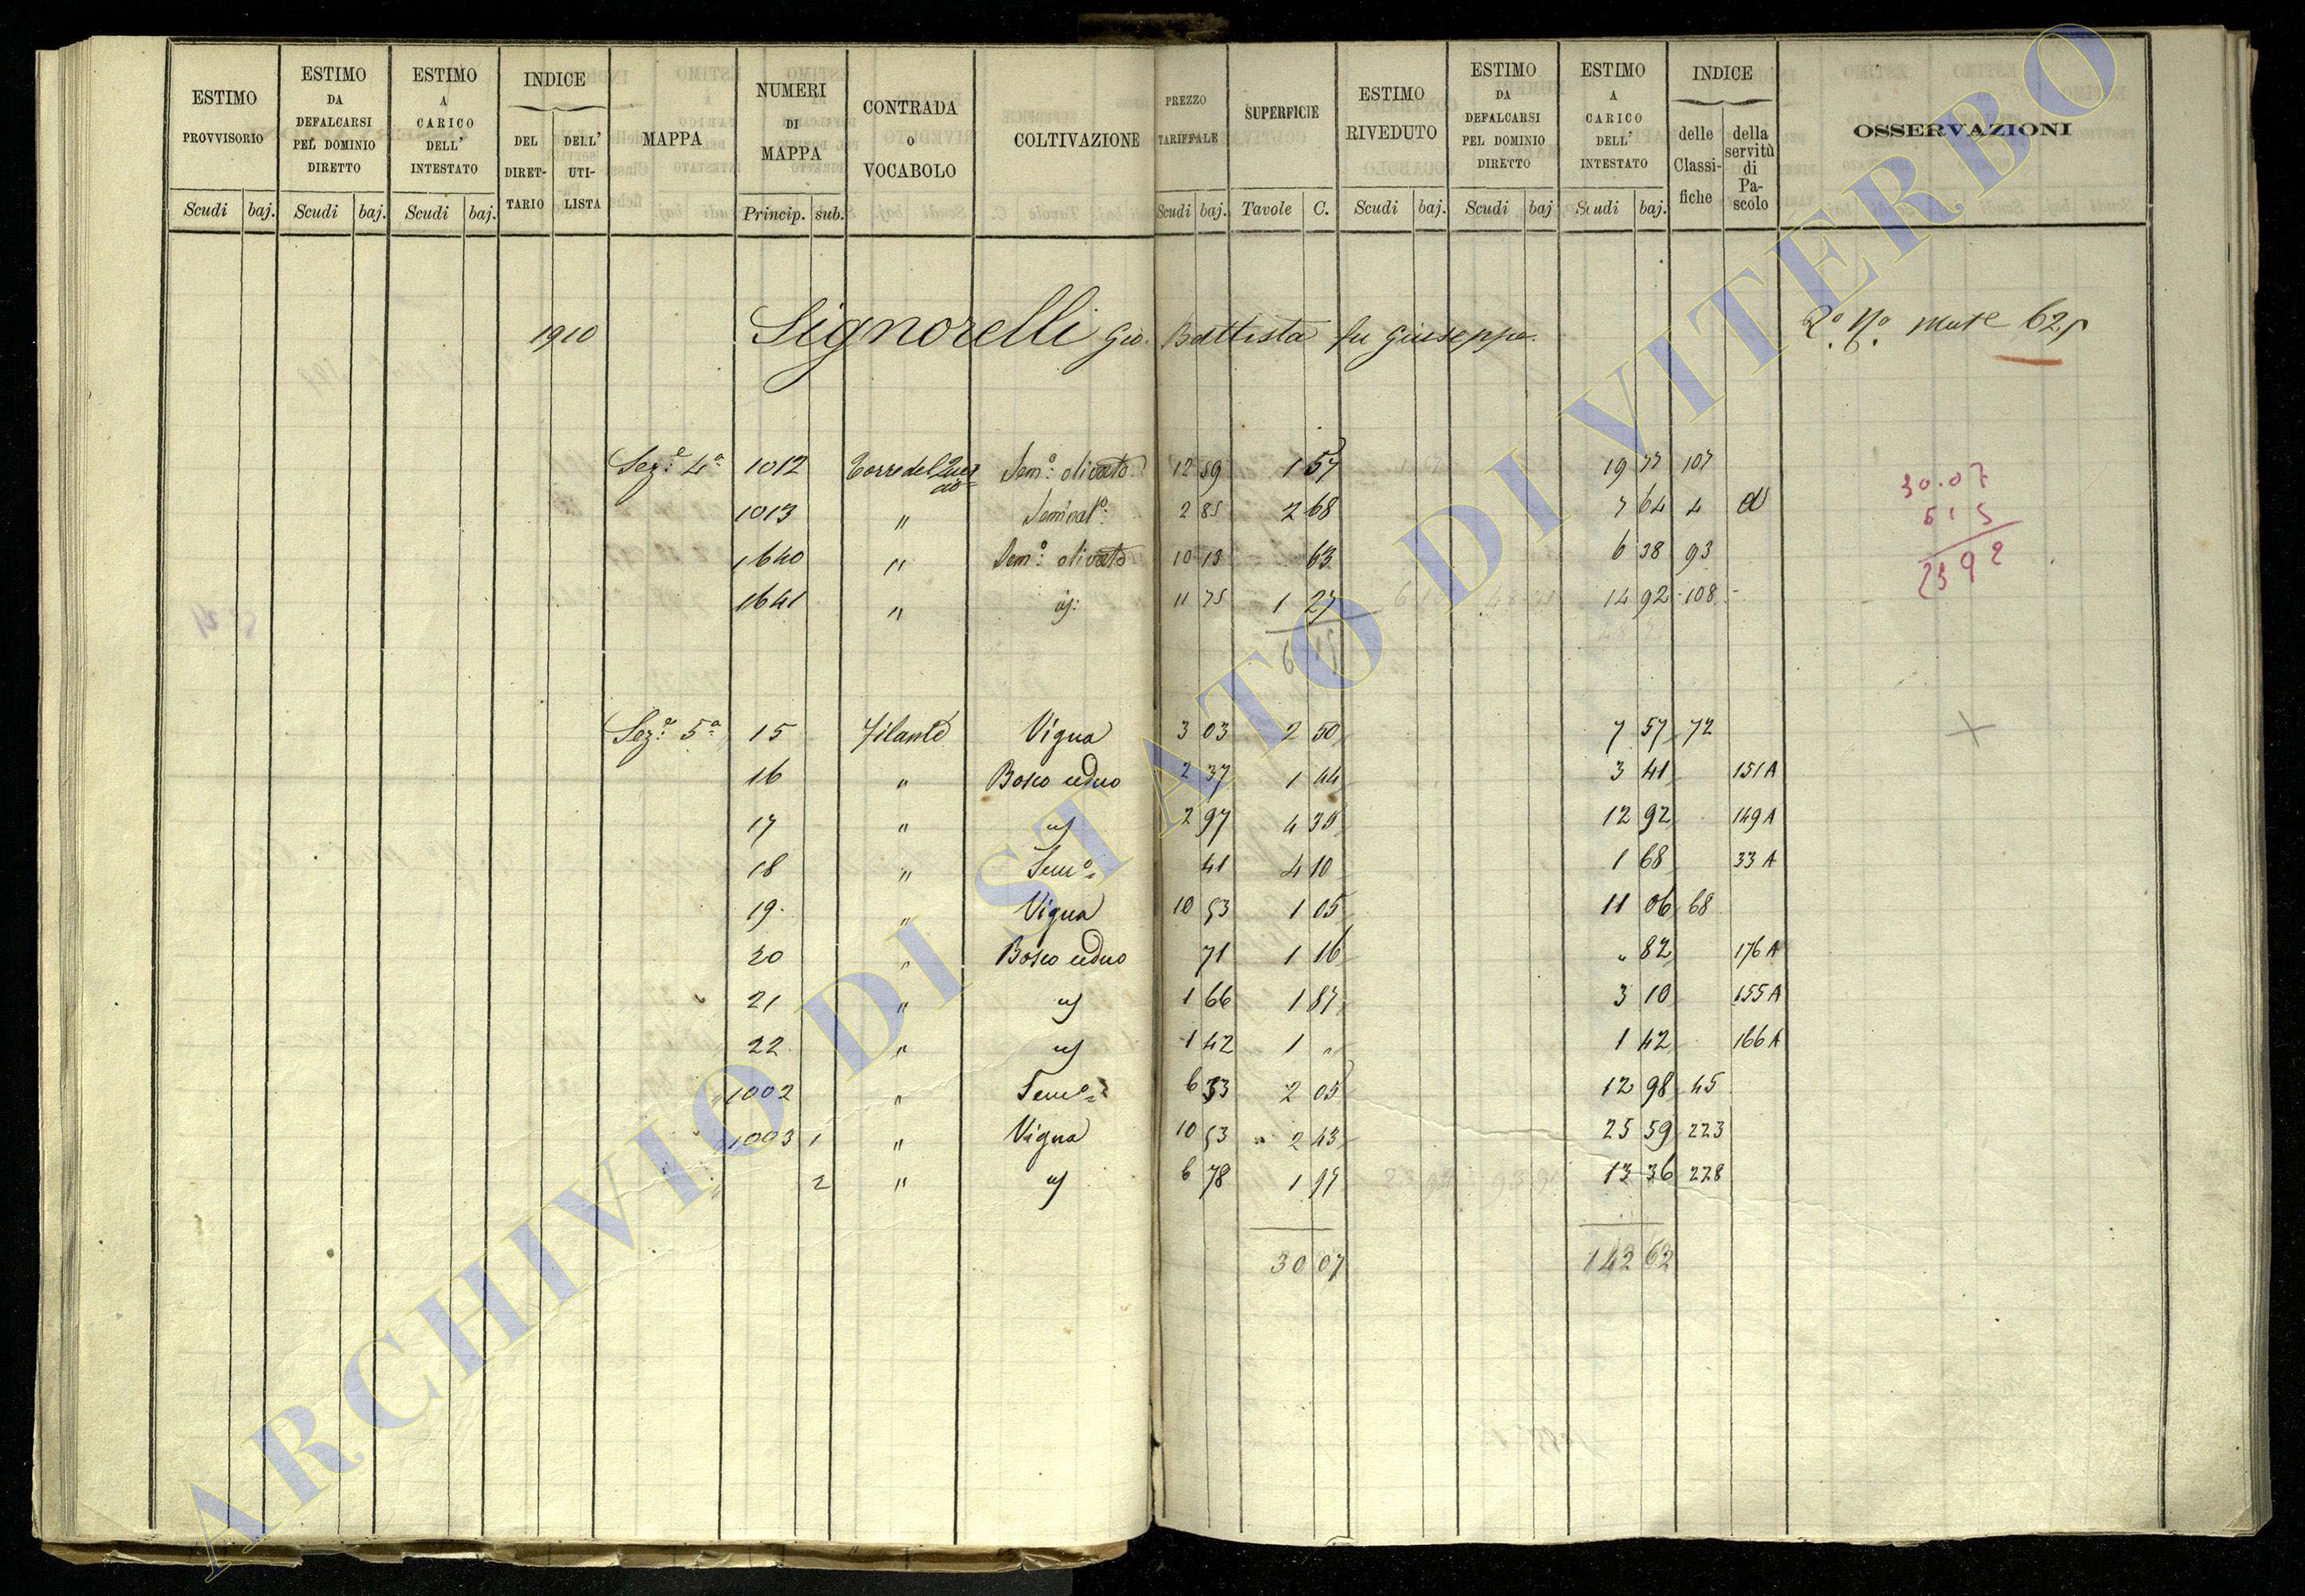 ESTIMO PROVVISORIO | ESTIMO DA DEFALCARSI PEL DOMINIO DIRETTO | ESTIMO A CARICO DELL' INTESTATO | INDICE DEL DIRETTARIO | DELL' UTILISTA | MAPPA | NUMERI DI MAPPA | CONTRADA O VOCABOLO | COLTIVAZIONE | PREZZO TARIFFALE | SUPERFICIE | ESTIMO RIVEDUTO | ESTIMO DA DEFALCARSI PEL DOMINIO DIRETTO | ESTIMO A CARICO DELL' INTESTATO | INDICE delle Classifiche | della servitù di Pascolo | OSSERVAZIONI
Scudi baj. Scudi baj. Scudi baj. Princip. sub. Scudi baj. Tavole C. Scudi baj. Scudi baj Scudi baj.
1910 Signorelli Gio. Battista fu Giuseppe
Sez.e 4a 1012 Torre del Sem.o olivato 12 59 1 57 19 77 107
1013 " Seminat.o 2 85 2 68 7 64 4
1640 " Sem.o olivato 10 13 63 6 38 93
1641 " 11 75 1 27 14 92 108
30.07
515
Sez.e 5a 15 Filante Vigna 3 03 2 50 7 57 72
16 " Bosco ceduo 2 37 1 44 3 41 151A
17 " 2 97 4 35 12 92 149A
18 " Sem.o 41 4 10 1 68 33 A
19 " Vigna 10 53 1 05 11 06 68
20 " Bosco ceduo 71 1 16 " 82 176 A
21 " 1 66 1 87 3 10 155A
22 " 1 42 1 " 1 42 166A
1002 " Sem.o 6 33 2 05 12 98 45
1003 1 " Vigna 10 53 2 43 25 59 223
2 " 6 78 1 97 13 36 228
30 07 142 62
ARCHIVIO DI STATO DI VITERBO